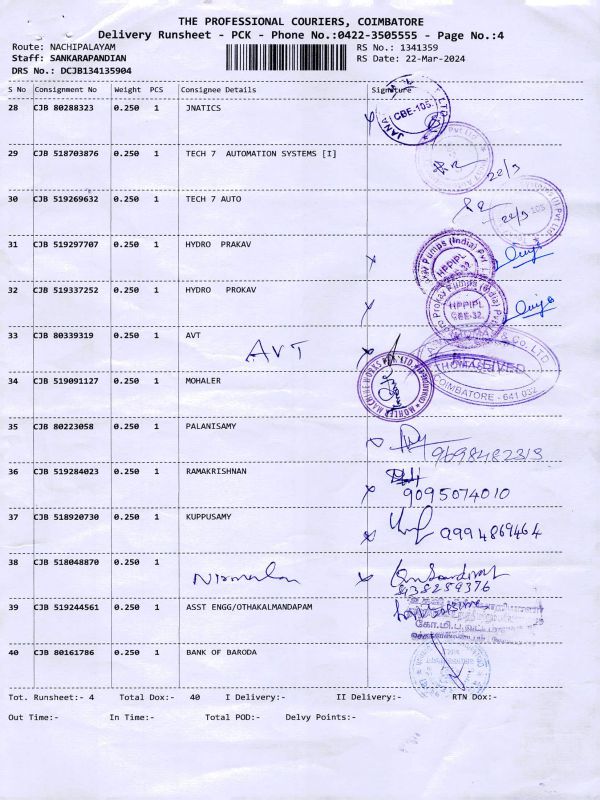 THE PROFESSIONAL COURIERS, COIMBATORE
Delivery Runsheet - PCK - Phone No.:0422-3505555 - Page No.:4
Route: NACHIPALAYAM RS No.: 1341359
Staff: SANKARAPANDIAN RS Date: 22-Mar-2024
DRS No.: DCJB134135904
S No Consignment No Weight PCS Consignee Details Signature
28 CJB 80288323 0.250 1 JNATICS
CBE-105
29 CJB 518703876 0.250 1 TECH 7 AUTOMATION SYSTEMS [I]
22/3
30 CJB 519269632 0.250 1 TECH 7 AUTO
22/3
31 CJB 519297707 0.250 1 HYDRO PRAKAV
Pumps (India) Pvt
HPPIPL
32 CJB 519337252 0.250 1 HYDRO PROKAV
Prokav Pumps (India) Pvt
HPPIPL
CBE-32
33 CJB 80339319 0.250 1 AVT
AVT
& Co. LTD
COIMBATORE - 641 032
34 CJB 519091127 0.250 1 MOHALER
MACHINE WORKS
35 CJB 80223058 0.250 1 PALANISAMY
9698482313
36 CJB 519284023 0.250 1 RAMAKRISHNAN
9095074010
37 CJB 518920730 0.250 1 KUPPUSAMY
9994869464
38 CJB 518048870 0.250 1 Nirmala
39 CJB 519244561 0.250 1 ASST ENGG/OTHAKALMANDAPAM
40 CJB 80161786 0.250 1 BANK OF BARODA
Tot. Runsheet:- 4 Total Dox:- 40 I Delivery:- II Delivery:- RTN Dox:-
Out Time:- In Time:- Total POD:- Delvy Points:-